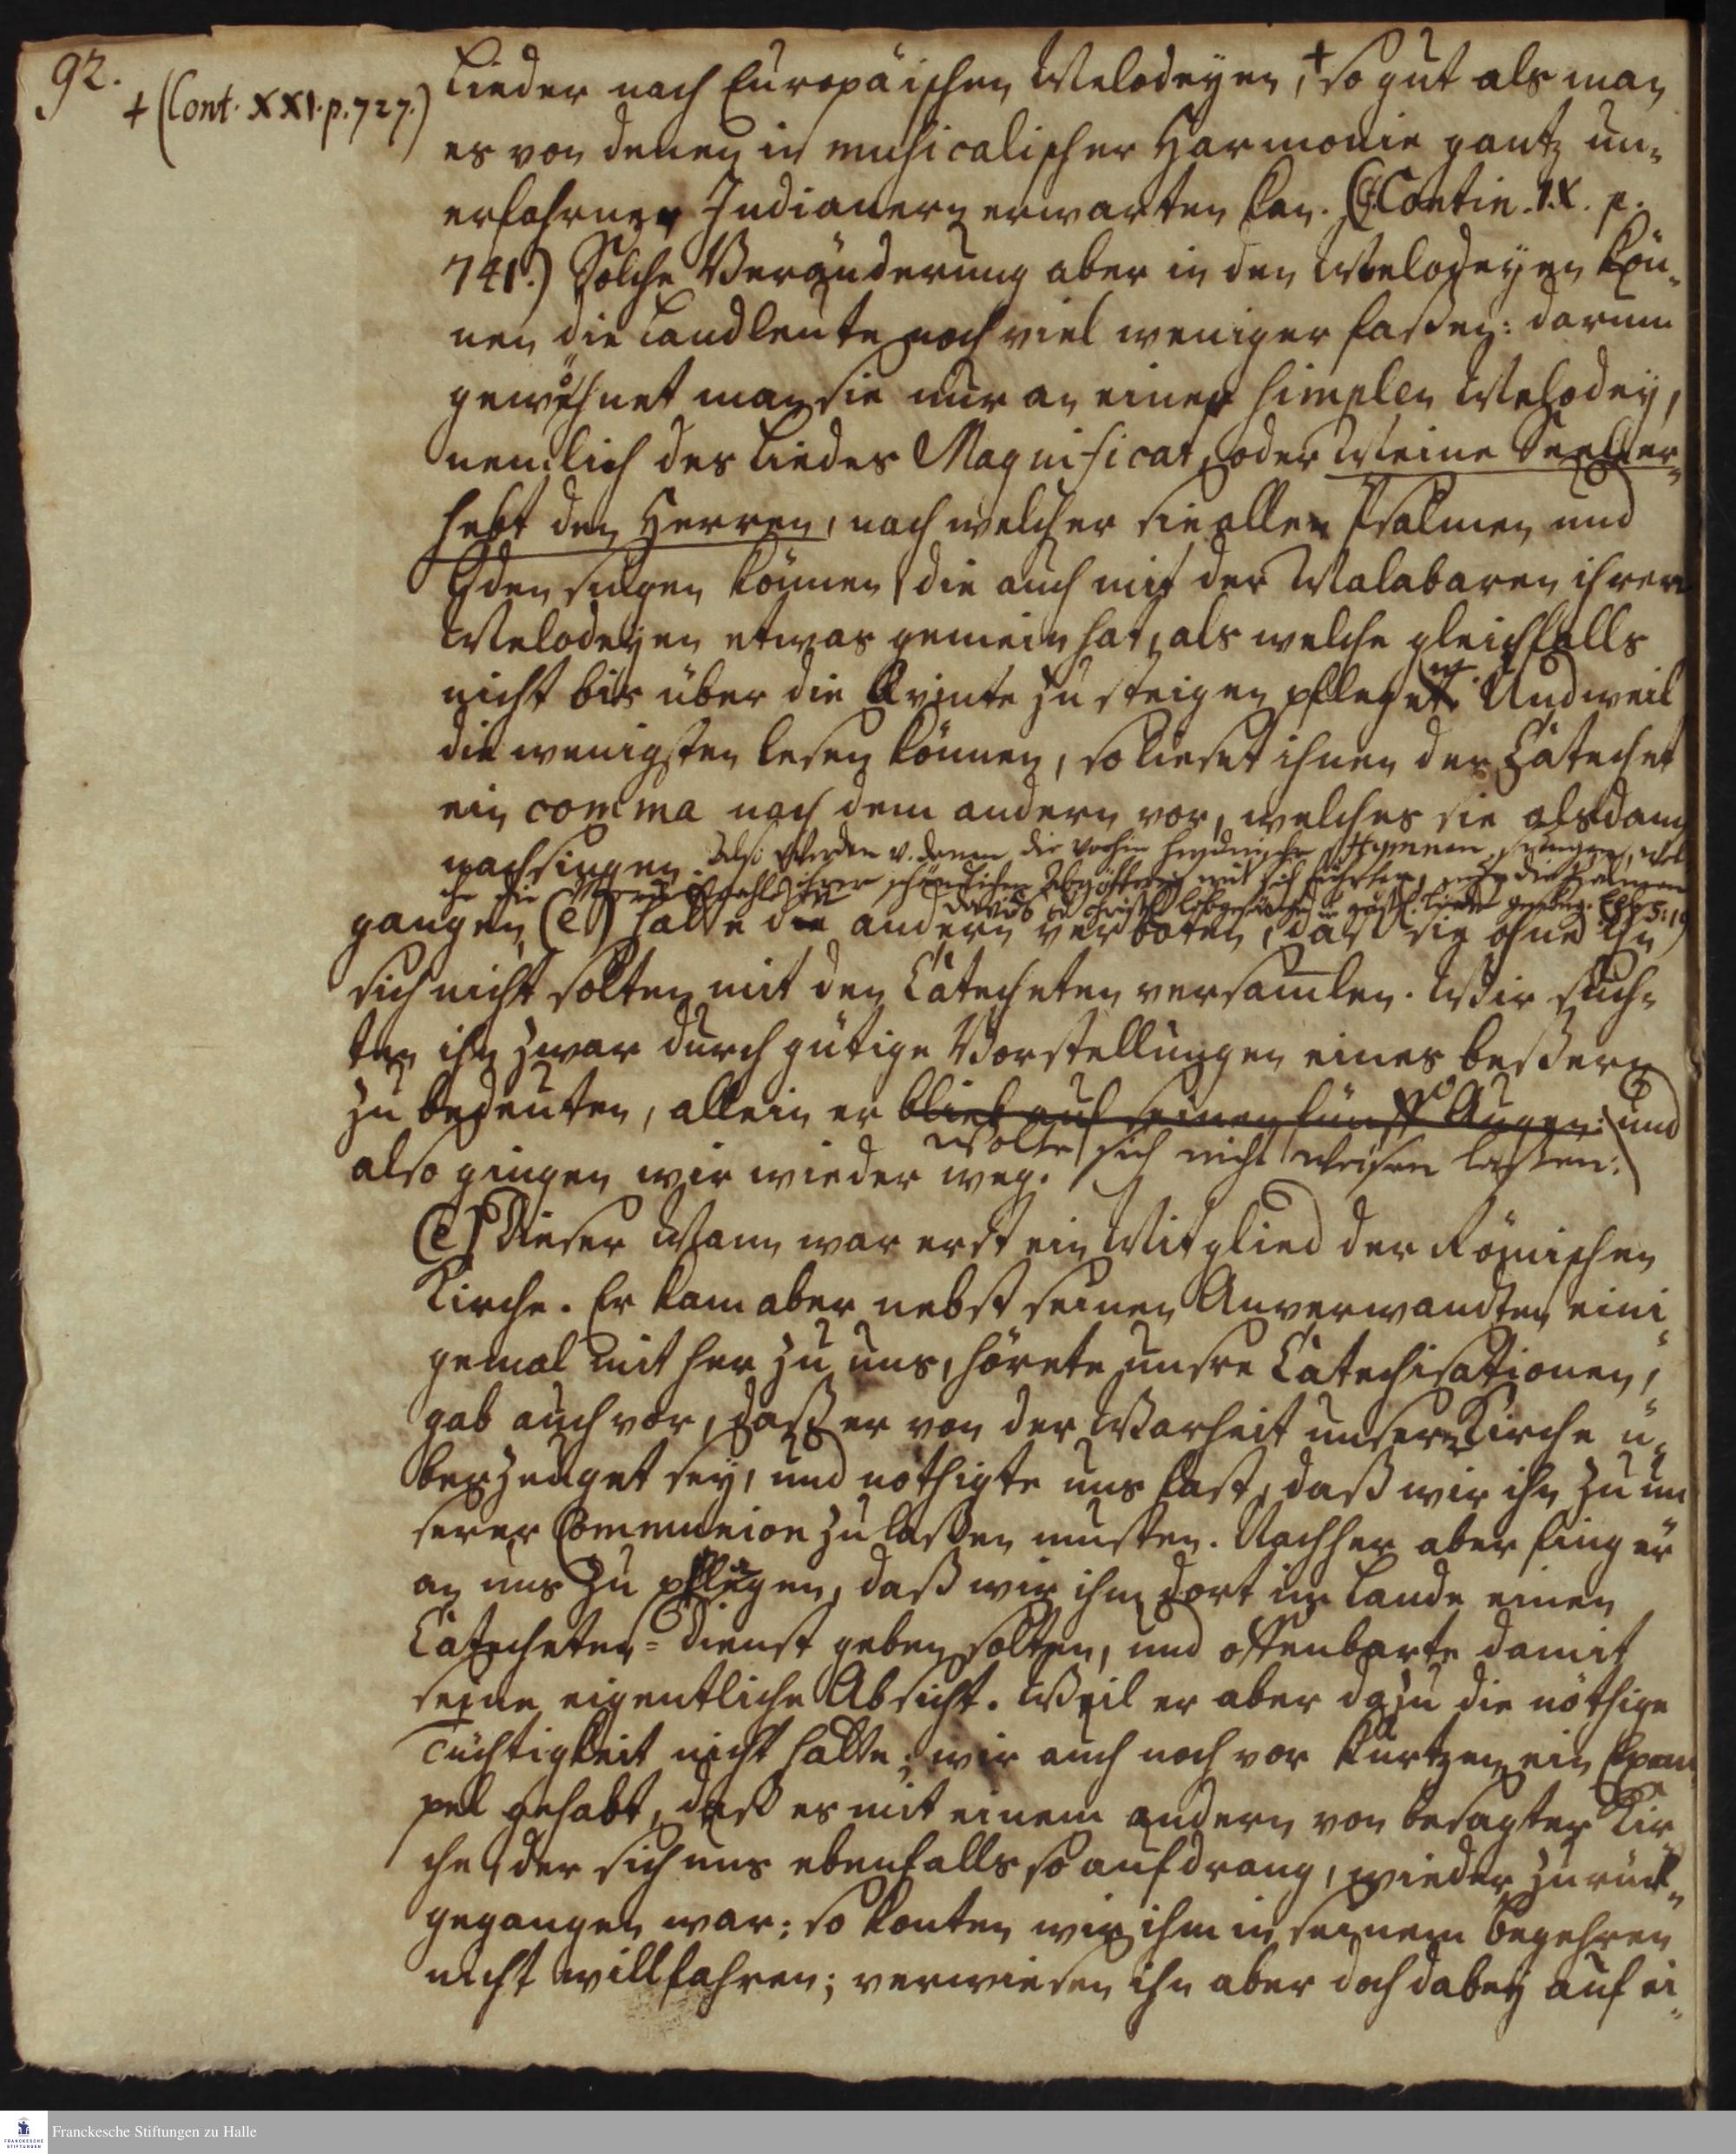 92.
+ (Cont. XXI. p. 727.)
Lieder nach Europäischen Melodeyen, + so gut als man
es von denen in musicalischer Harmonie gantz un-
erfahrnen Indianern erwarten kan. (Contin. IX. p.
741.) Solche Veränderung aber in den Melodeyen kön-
nen die Landleute noch viel weniger faßen: darum
gewöhnet man sie nur an einer simplen Melodey,
nemlich des Liedes Magnificat, oder Meine Seele er-
hebt den Herren, nach welcher sie alle Psalmen und
Oden singen können, die auch mit der Malabaren ihren
Melodeyen etwas gemein hat, als welche gleichfalls
nicht bis über die Quinte zu steigen pflegen. Und weil
die wenigsten lesen können, so lieset ihnen der Catechet
ein comma nach dem andern vor, welches sie alsdann
nachsingen. Also werden v. denen die vorhin heydnische Hymnen sungen, wel-
che die ihrer schändlichen Abgötterey mit sich führten, nun die Psalmen
Davids u. Christl. Lobgesänge u. geistl. Lieder gesungen. Eph. 5:19
gangen, (e) hatte den andern verboten, daß sie ohne ihn
sich nicht solten mit den Catecheten versamlen. Wir such-
ten ihn zwar durch gütige Vorstellungen eines beßern
zu bedeuten, allein er blieb auf seinen fünff Augen: und
wolte sich nicht weisen laßen:
also gingen wir wieder weg.
(e) Dieser Mann war erst ein Mitglied der Römischen
Kirche. Er kam aber nebst seinen Anverwandten eini-
gemal mit her zu uns, hörete unsre Catechisationen,
gab auch vor, daß er von der Warheit unserer Kirche ü-
berzeuget sey, und nöthigte uns fast, daß wir ihn zu un-
serer Communion zulaßen musten. Nachher aber fing er
an uns zu plagen, daß wir ihm dort im Lande einen
Catecheten-Dienst geben solten, und offenbarte damit
seine eigentliche Absicht. Weil er aber dazu die nöthige
Tüchtigkeit nicht hatte; wir auch noch vor kurtzem ein Exem-
pel gehabt, daß es mit einem andern von besagter Kir-
che, der sich uns ebenfalls so aufdrang, wieder zurück-
gegangen war: so konten wir ihm in seinem Begehren
nicht willfahren; verwiesen ihn aber doch dabey auf ei-
Franckesche Stiftungen zu Halle